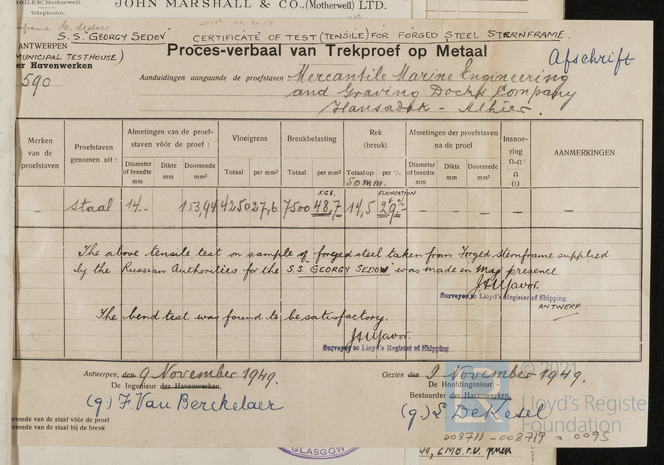 JOHN MARSHALL & CO., (Motherwell) LTD.
Telephone.
S.S. "GEORGY SEDOV" CERTIFICATE OF TEST (TENSILE) FOR FORGED STEEL STERNFRAME.
ANTWERPEN
(MUNICIPAL TESTHOUSE)
er Havenwerken
Proces-verbaal van Trekproef op Metaal
Afschrift
590
Aanduidingen aangaande de proefstaven
Mercantile Marine Engineering
and Graving Docks Company
Hansadok - Alhier.
Merken van de proefstaven
Proefstaven genomen uit:
Afmetingen van de proefstaven vóór de proef:
Diameter of breedte mm
Dikte mm
Doorsnede mm²
Vloeigrens
Totaal per mm²
Breukbelasting
Totaal per mm²
Rek (breuk)
Totaal op: 50 mm. per %
Afmetingen der proefstaven na de proef
Diameter of breedte mm
Dikte mm
Doorsnede mm²
Insnoering
Ω-Ω'
Ω
(1)
AANMERKINGEN
KGS. ELONGATION
- Staal 14.- 153,94 4250 27,6 7500 48,7 14,5 29% - - - - -
The above tensile test on sample of forged steel taken from Forged Sternframe supplied
by the Russian Authorities for the S.S. "GEORGY SEDOV" was made in my presence
Surveyor to Lloyd's Register of Shipping
ANTWERP.
The bend test was found to be satisfactory.
Surveyor to Lloyd's Register of Shipping
Antwerpen, den 9 November 1949.
De Ingenieur der Havenwerken,
(g) F. Van Berckelaer
Gezien den 9 November 1949.
De Hoofdingenieur
Bestuurder der Havenwerken,
(g) L. De Kesel
oorsnede van de staaf vóór de proef
oorsnede van de staaf bij de breuk
© 2021
Lloyd's Register
Foundation
008711-008719-0095
GLASGOW